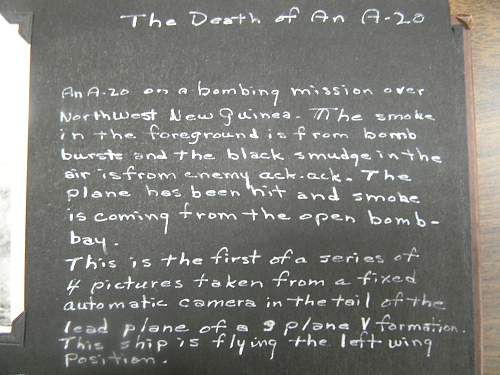 The Death of An A-20
An A-20 on a bombing mission over
Northwest New Guinea. The smoke
in the foreground is from bomb
bursts and the black smudge in the
air is from enemy ack-ack. The
plane has been hit and smoke
is coming from the open bomb-
bay.
This is the first of a series of
4 pictures taken from a fixed
automatic camera in the tail of the
lead plane of a 3 plane V formation.
This ship is flying the left wing
position.